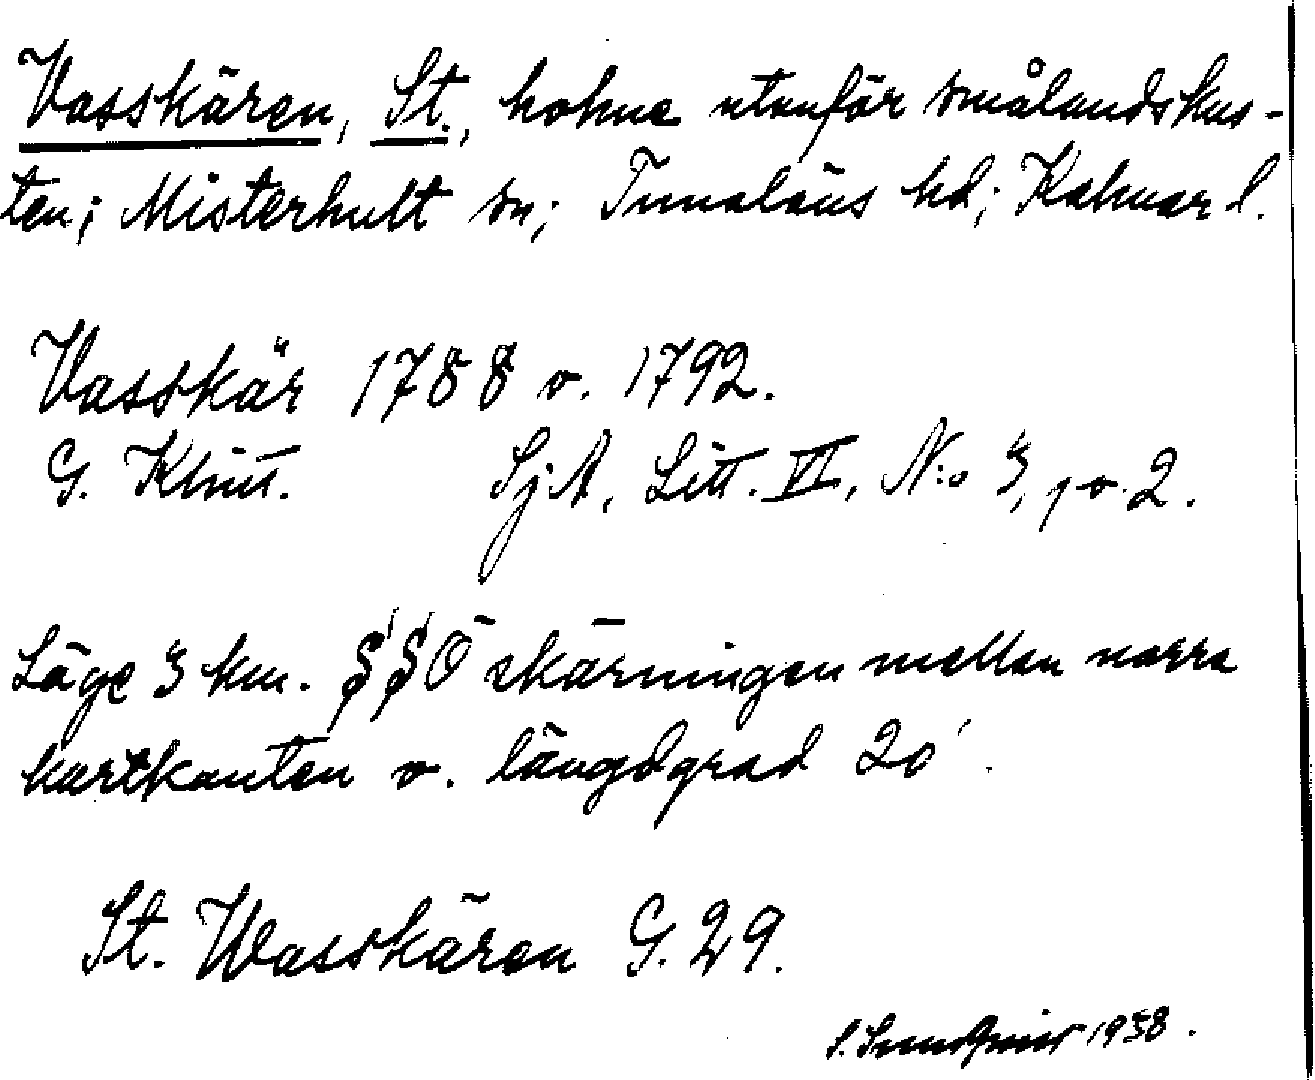 Vasskären, St., holme utanför smålandskus-
ten; Misterhult sn; Tunaläns hd; Kalmar l.
Vasskär 1788 o. 1792.
G. Klint. SjA, Litt. VI, N:o 3, 1 o. 2.
Läge 3 km. SSO skärningen mellan norra
kartkanten o. längdgrad 20'.
St. Wasskären G. 29.
S. Sundqvist 1938.